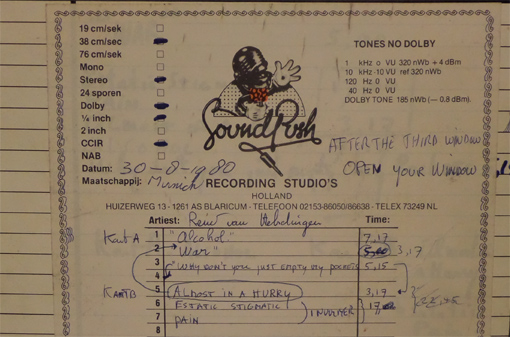 19 cm/sek
38 cm/sec
76 cm/sek
Mono
Stereo
24 sporen
Dolby
¼ inch
2 inch
CCIR
NAB
Datum: 30-8-1980
Maatschappij: Munich
TONES NO DOLBY
1 kHz 0 VU 320 nWb + 4 dBm
10 kHz 10 VU ref 320 nWb
120 Hz 0 VU
40 Hz 0 VU
DOLBY TONE 185 nWb (— 0.8 dBm).
SoundPush
AFTER THE THIRD WINDOW
OPEN YOUR WINDOW
RECORDING STUDIO'S
HOLLAND
HUIZERWEG 13 - 1261 AS BLARICUM - TELEFOON 02153-86050/86638 - TELEX 73249 NL
Artiest: van Time:
Kant A 1 "Alcohol" 7,17
2 "War" 3,17
3 "WHY DON'T YOU JUST EMPTY MY POCKETS 5,15
4
Kant B 5 ALMOST IN A HURRY 3,17
6 ESTATIC STIGMATIC 17
7 PAIN
8